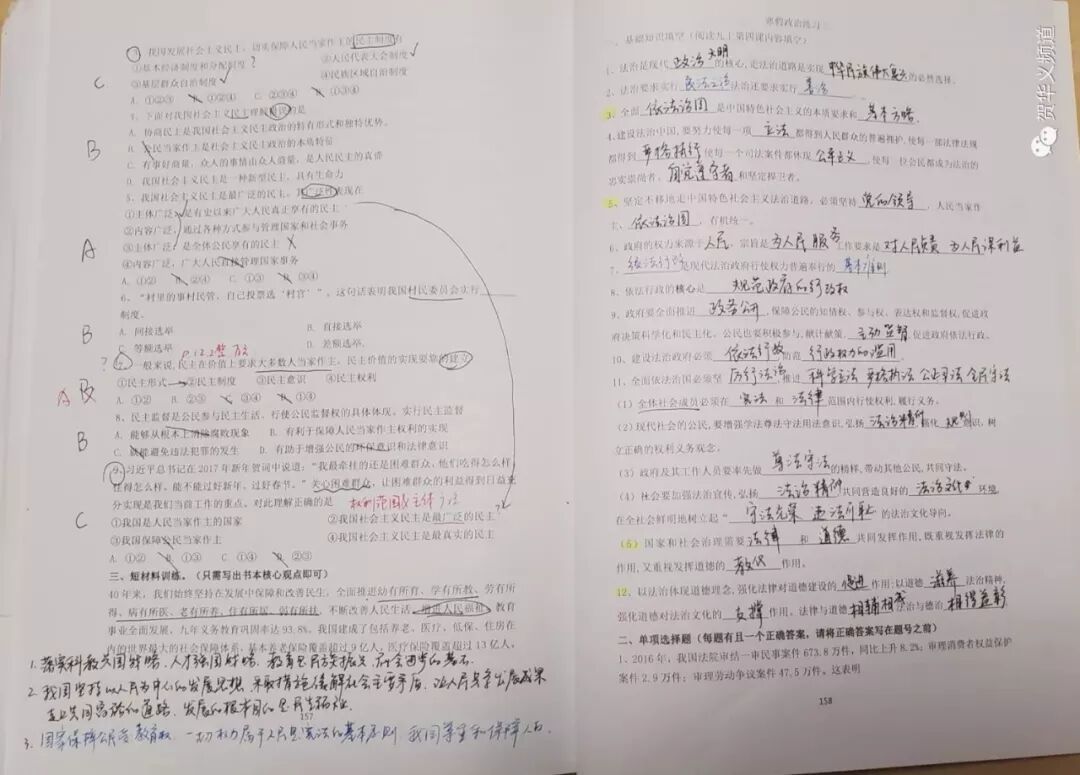 我国发展社会主义民主，切实保障人民当家作主的民主制度有
①基本经济制度和分配制度 ? ②人民代表大会制度 ✓
③基层群众自治制度 ✓ ④民族区域自治制度
C
A. ①②③ B. ①②④ C. ②③④ D. ①③④
下面对我国社会主义民主理解错误的是
A. 协商民主是我国社会主义民主政治的特有形式和独特优势。
B
B. 人民当家作主是社会主义民主政治的本质特征
C. 有事好商量，众人的事情由众人商量，是人民民主的真谛
D. 我国社会主义民主是一种新型民主，具有生命力
5、我国社会主义民主是最广泛的民主，其广泛性表现在
①主体广泛 是有史以来广大人民真正享有的民主
②内容广泛，通过各种方式参与管理国家和社会事务
A
③主体广泛 是全体公民享有的民主 X
④内容广泛，广大人民直接管理国家事务
A. ①② B. ②④ C. ①③ D. ③④
6、“村里的事村民管，自己投票选‘村官’”，这句话表明我国村民委员会实行
制度。
B
A. 间接选举 B. 直接选举
C. 等额选举 D. 差额选举
? 7、一般来说，民主在价值上要求大多数人当家作主，民主价值的实现要靠 的建立
①民主形式 ②民主制度 ③民主意识 ④民主权利
B
A. ①② B. ②③ C. ③④ D. ①④
8、民主监督是公民参与民主生活，行使公民监督权的具体体现。实行民主监督
B
A. 能够从根本上消除腐败现象 B. 有利于保障人民当家作主权利的实现
C. 就能避免违法犯罪的发生 D. 有助于增强公民的环保意识和法律意识
9、习近平总书记在 2017 年新年贺词中说道：“我最牵挂的还是困难群众，他们吃得怎么样、
住得怎么样，能不能过好新年、过好春节。”关心困难群众，让困难群众的利益得到日益充
分实现是我们当前工作的重点。对此理解正确的是
C
①我国是人民当家作主的国家 ②我国社会主义民主是最广泛的民主
③我国保障公民当家作主 ④我国社会主义民主是最真实的民主
A. ①② B. ①③ C. ①④ D. ②③
三、短材料训练。（只需写出书本核心观点即可）
40 年来，我们始终坚持在发展中保障和改善民生，全面推进幼有所育、学有所教、劳有所
得、病有所医、老有所养、住有所居、弱有所扶，不断改善人民生活、增进人民福祉。教育
事业全面发展，九年义务教育巩固率达 93.8%。我国建成了包括养老、医疗、低保、住房在
内的世界最大的社会保障体系，基本养老保险覆盖超过 9 亿人，医疗保险覆盖超过 13 亿人。
1. 落实科教兴国战略、人才强国战略，教育是民族振兴、社会进步的基石
2. 我国坚持以人民为中心的发展思想
走共同富裕的道路，发展的根本目的
157
3. 国家保障公民受教育权 一切权力属于人民是宪法的基本原则 我国尊重和保障人权
寒假政治练习
一、基础知识填空（阅读九上第四课内容填空）
1、法治是现代 政治文明 的核心，走法治道路是实现 中华民族伟大复兴 的必然选择。
2、法治要求实行 良法之治 法治还要求实行 善治
3、全面 依法治国 是中国特色社会主义的本质要求和 基本方略
4、建设法治中国，要努力使每一项 立法 都得到人民群众的普遍拥护，使每一部法律法规
都得到 严格执行 使每一个司法案件都体现 公平正义 ，使每一位公民都成为法治的
忠实崇尚者、 自觉遵守者 和坚定捍卫者。
5、坚定不移地走中国特色社会主义法治道路，必须坚持 党的领导 、人民当家作
主、 依法治国 ，有机统一。
6、政府的权力来源于 人民 ，宗旨是 为人民服务 工作要求是 对人民负责 为人民谋利益
7、依法行政 是现代法治政府行使权力普遍奉行的 基本准则
8、依法行政的核心是 规范政府的行政权
9、政府要全面推进 政务公开 ，保障公民的知情权、参与权、表达权和监督权，促进政
府决策科学化和民主化。公民也要积极参与，献计献策， 主动监督 促进政府依法行政。
10、建设法治政府必须 依法行政 防范 行政权力的滥用
11、全面依法治国必须坚 厉行法治 推进 科学立法 严格执法 公正司法 全民守法
（1）全体社会成员必须在 宪法 和 法律 范围内行使权利，履行义务。
（2）现代社会的公民，要增强学法尊法守法用法意识，弘扬 法治精神 强化 规则 意识，树
立正确的权利义务观念。
（3）政府及其工作人员要率先做 尊法守法 的榜样，带动其他公民，共同守法。
（4）社会要加强法治宣传，弘扬 法治精神 共同营造良好的 法治文化 环境
在全社会鲜明地树立起“ 守法光荣 违法可耻 的法治文化导向。
（5）国家和社会治理需要 法律 和 道德 共同发挥作用，既重视发挥法律的
作用，又重视发挥道德的 教化 作用。
12、以法治体现道德理念，强化法律对道德建设的 促进 作用；以道德 滋养 法治精神，
强化道德对法治文化的 支撑 作用。法律与道德 相辅相成 法治与德治 相得益彰
二、单项选择题（每题有且一个正确答案，请将正确答案写在题号之前）
1、2016 年，我国法院审结一审民事案件 673.8 万件，同比上升 8.2%；审理消费者权益保护
案件 2.9 万件；审理劳动争议案件 47.5 万件。这表明
158
贺华义频道